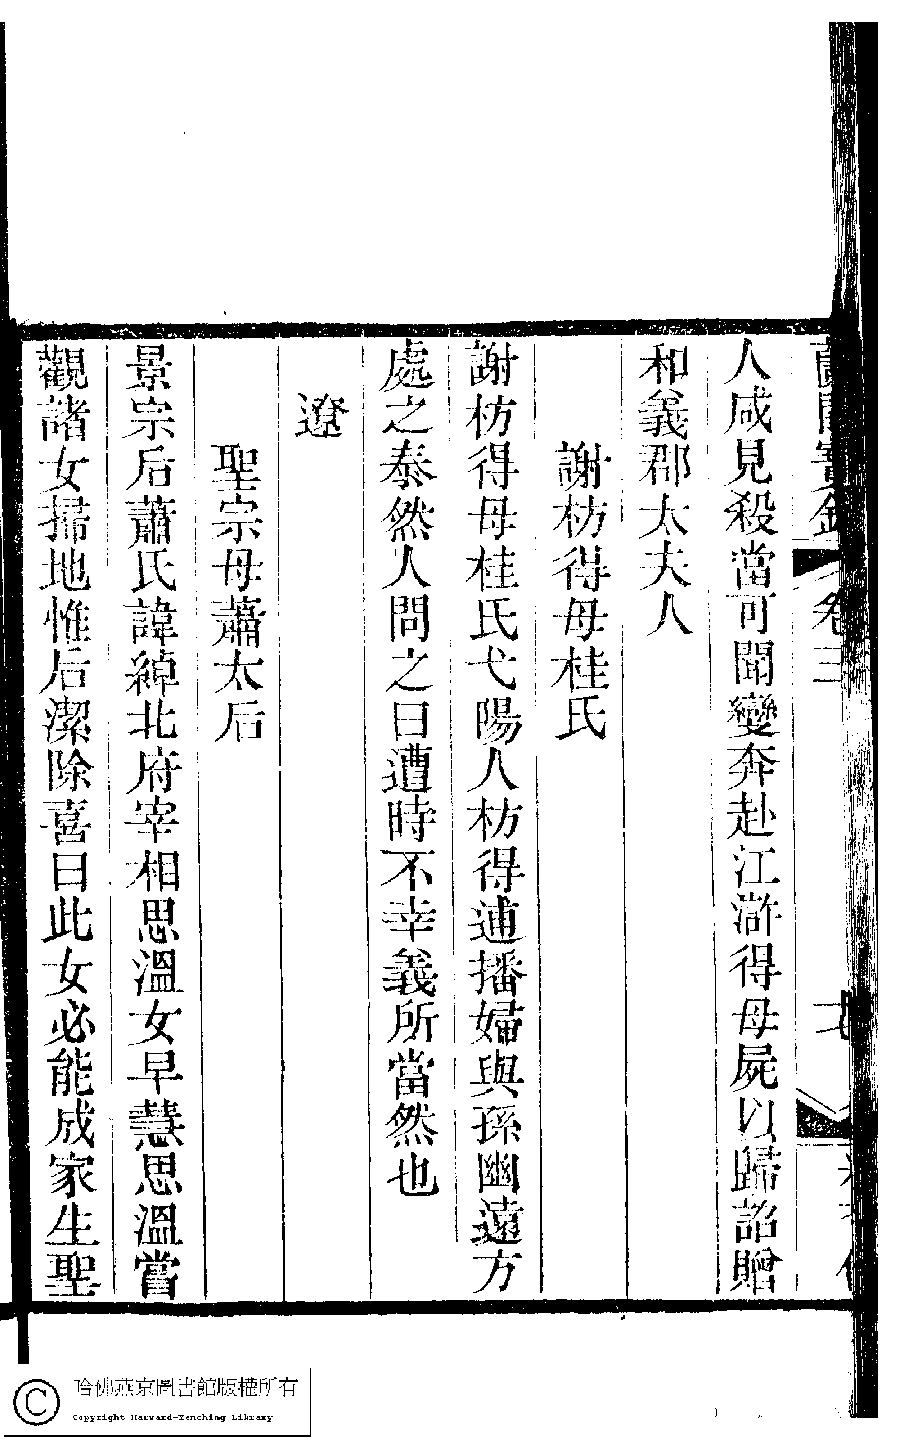 人咸見殺當可聞變奔赴江滸得母屍以歸詔贈
和義郡太夫人
謝枋得母桂氏
謝枋得母桂氏弋陽人枋得逋播婦與孫幽遠方
處之泰然人問之曰遭時不幸義所當然也
遼
聖宗母蕭太后
景宗后蕭氏諱綽北府宰相思溫女早慧思溫嘗
觀諸女掃地惟后潔除喜曰此女必能成家生聖
卷三
哈佛燕京圖書館版權所有
Copyright Harvard-Yenching Library